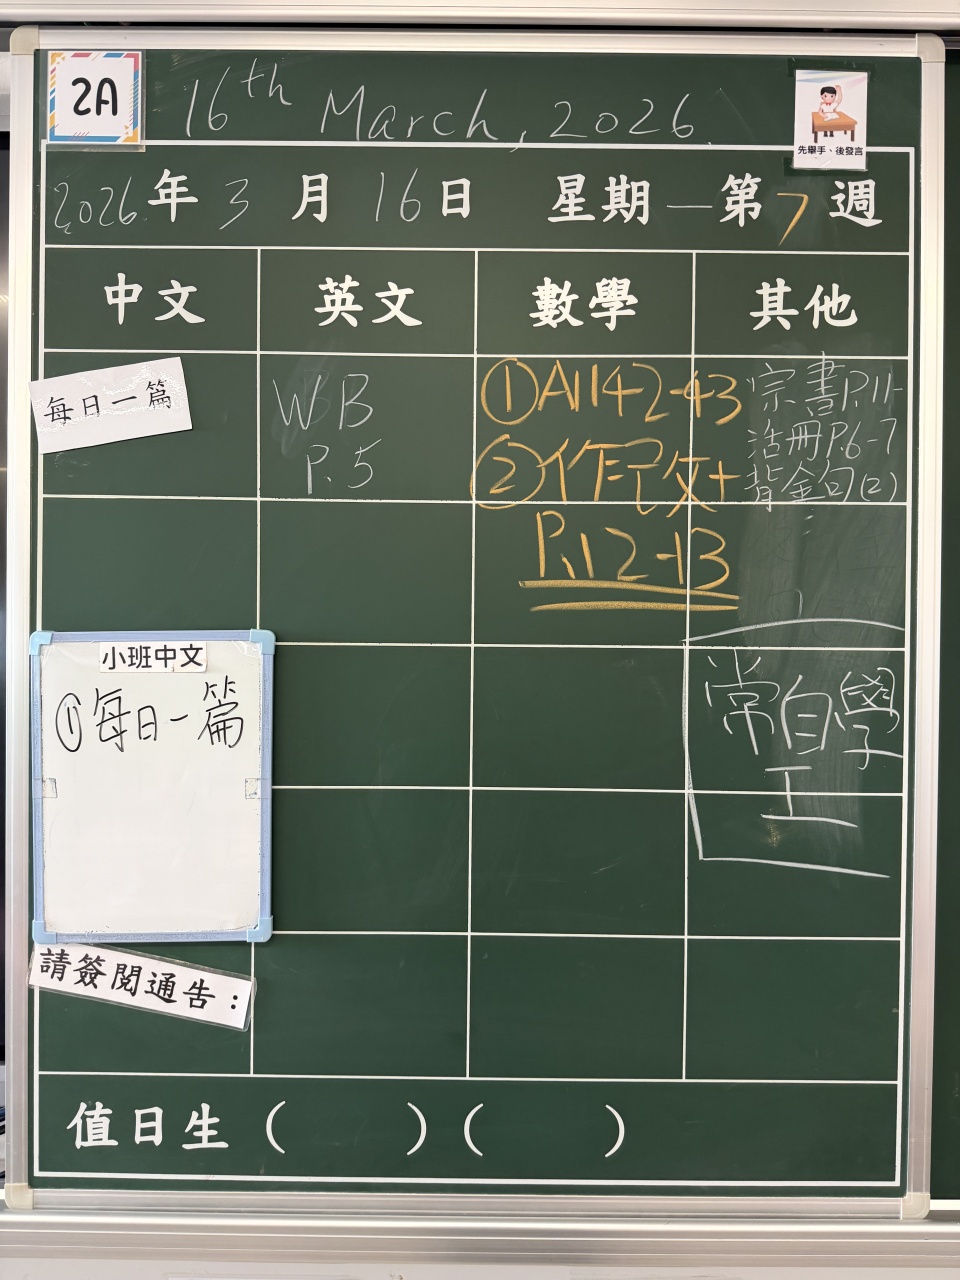 2A
16th March, 2026.
先舉手、後發言
2026年3月16日 星期一第7週
中文 英文 數學 其他
每日一篇
WB
P.5
①A1142-43
②作記文+
P.12-13
宗書P.11-
活冊P.6-7
背金句(2)
小班中文
①每日一篇
常自學
工
請簽閱通告：
值日生（ ）（ ）